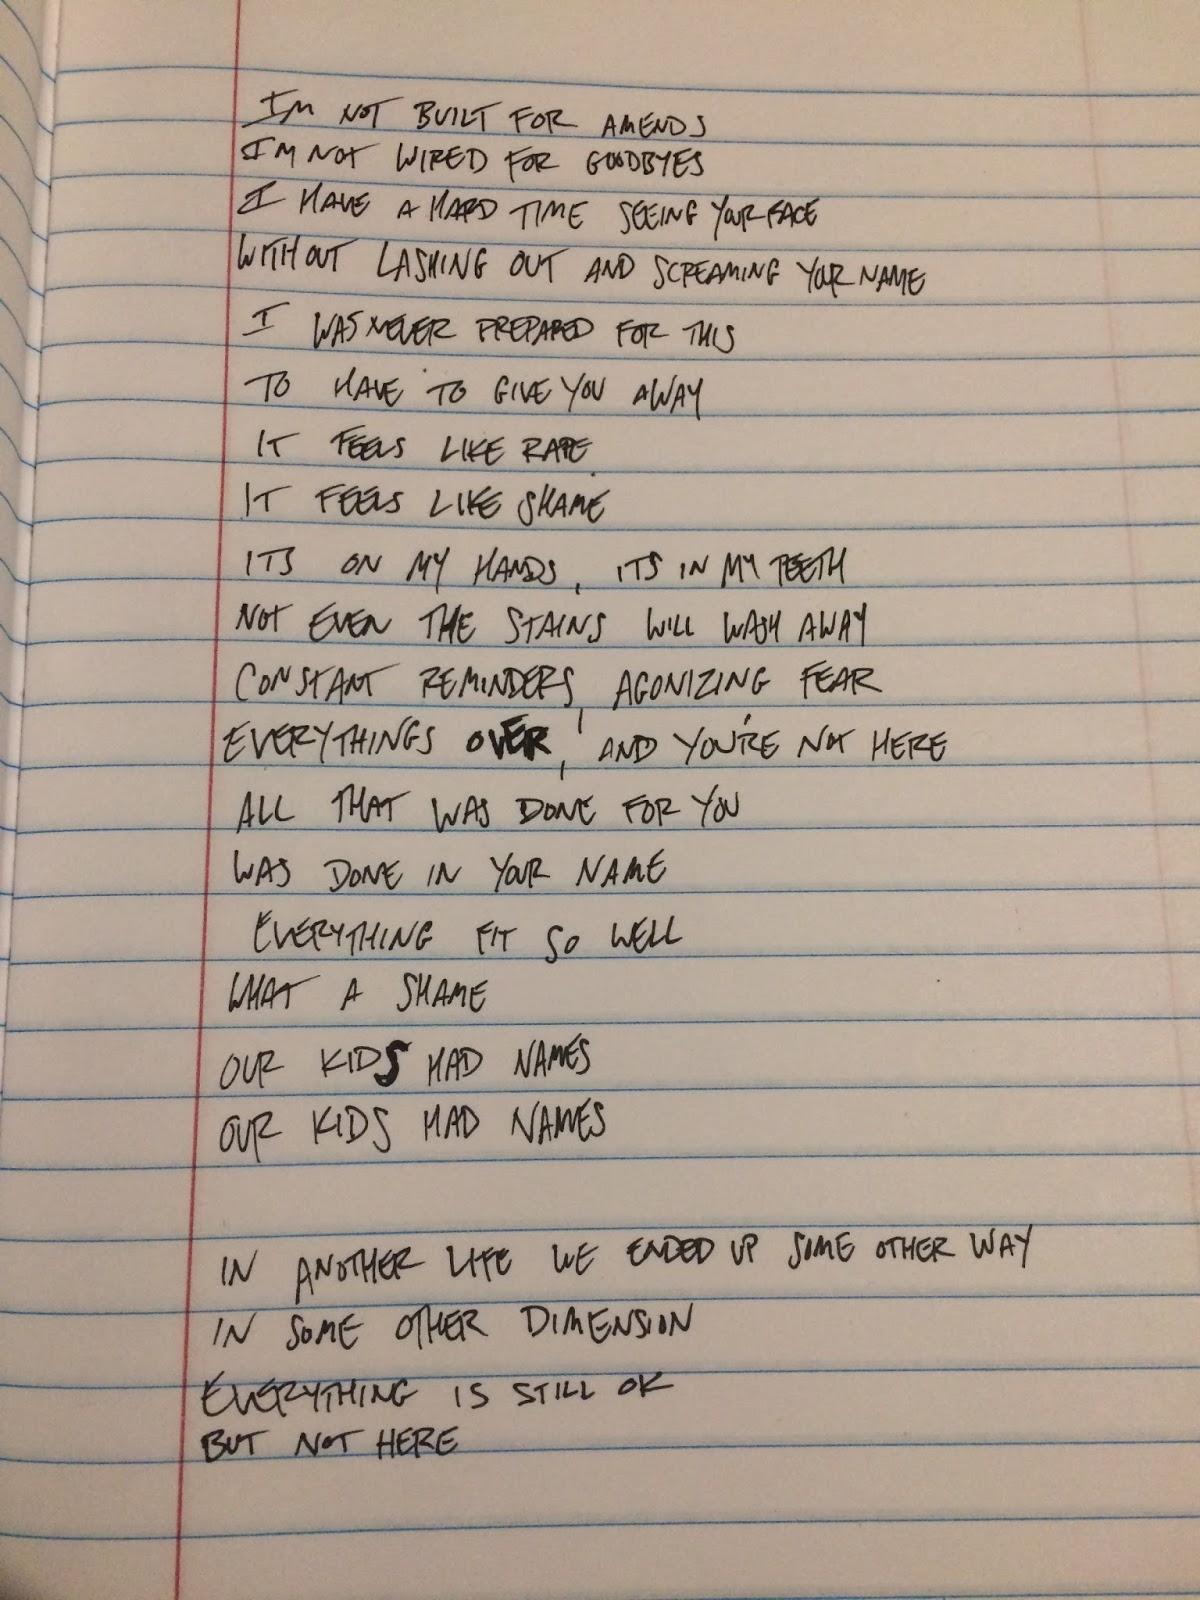 IM NOT BUILT FOR AMENDS
I'M NOT WIRED FOR GOODBYES
I HAVE A HARD TIME SEEING YOUR FACE
WITHOUT LASHING OUT AND SCREAMING YOUR NAME
I WAS NEVER PREPARED FOR THIS
TO HAVE TO GIVE YOU AWAY
IT FEELS LIKE RAPE
IT FEELS LIKE SHAME
ITS ON MY HANDS, ITS IN MY TEETH
NOT EVEN THE STAINS WILL WASH AWAY
CONSTANT REMINDERS, AGONIZING FEAR
EVERYTHINGS OVER, AND YOU'RE NOT HERE
ALL THAT WAS DONE FOR YOU
WAS DONE IN YOUR NAME
EVERYTHING FIT SO WELL
WHAT A SHAME
OUR KIDS HAD NAMES
OUR KIDS HAD NAMES
IN ANOTHER LIFE WE ENDED UP SOME OTHER WAY
IN SOME OTHER DIMENSION
EVERYTHING IS STILL OK
BUT NOT HERE